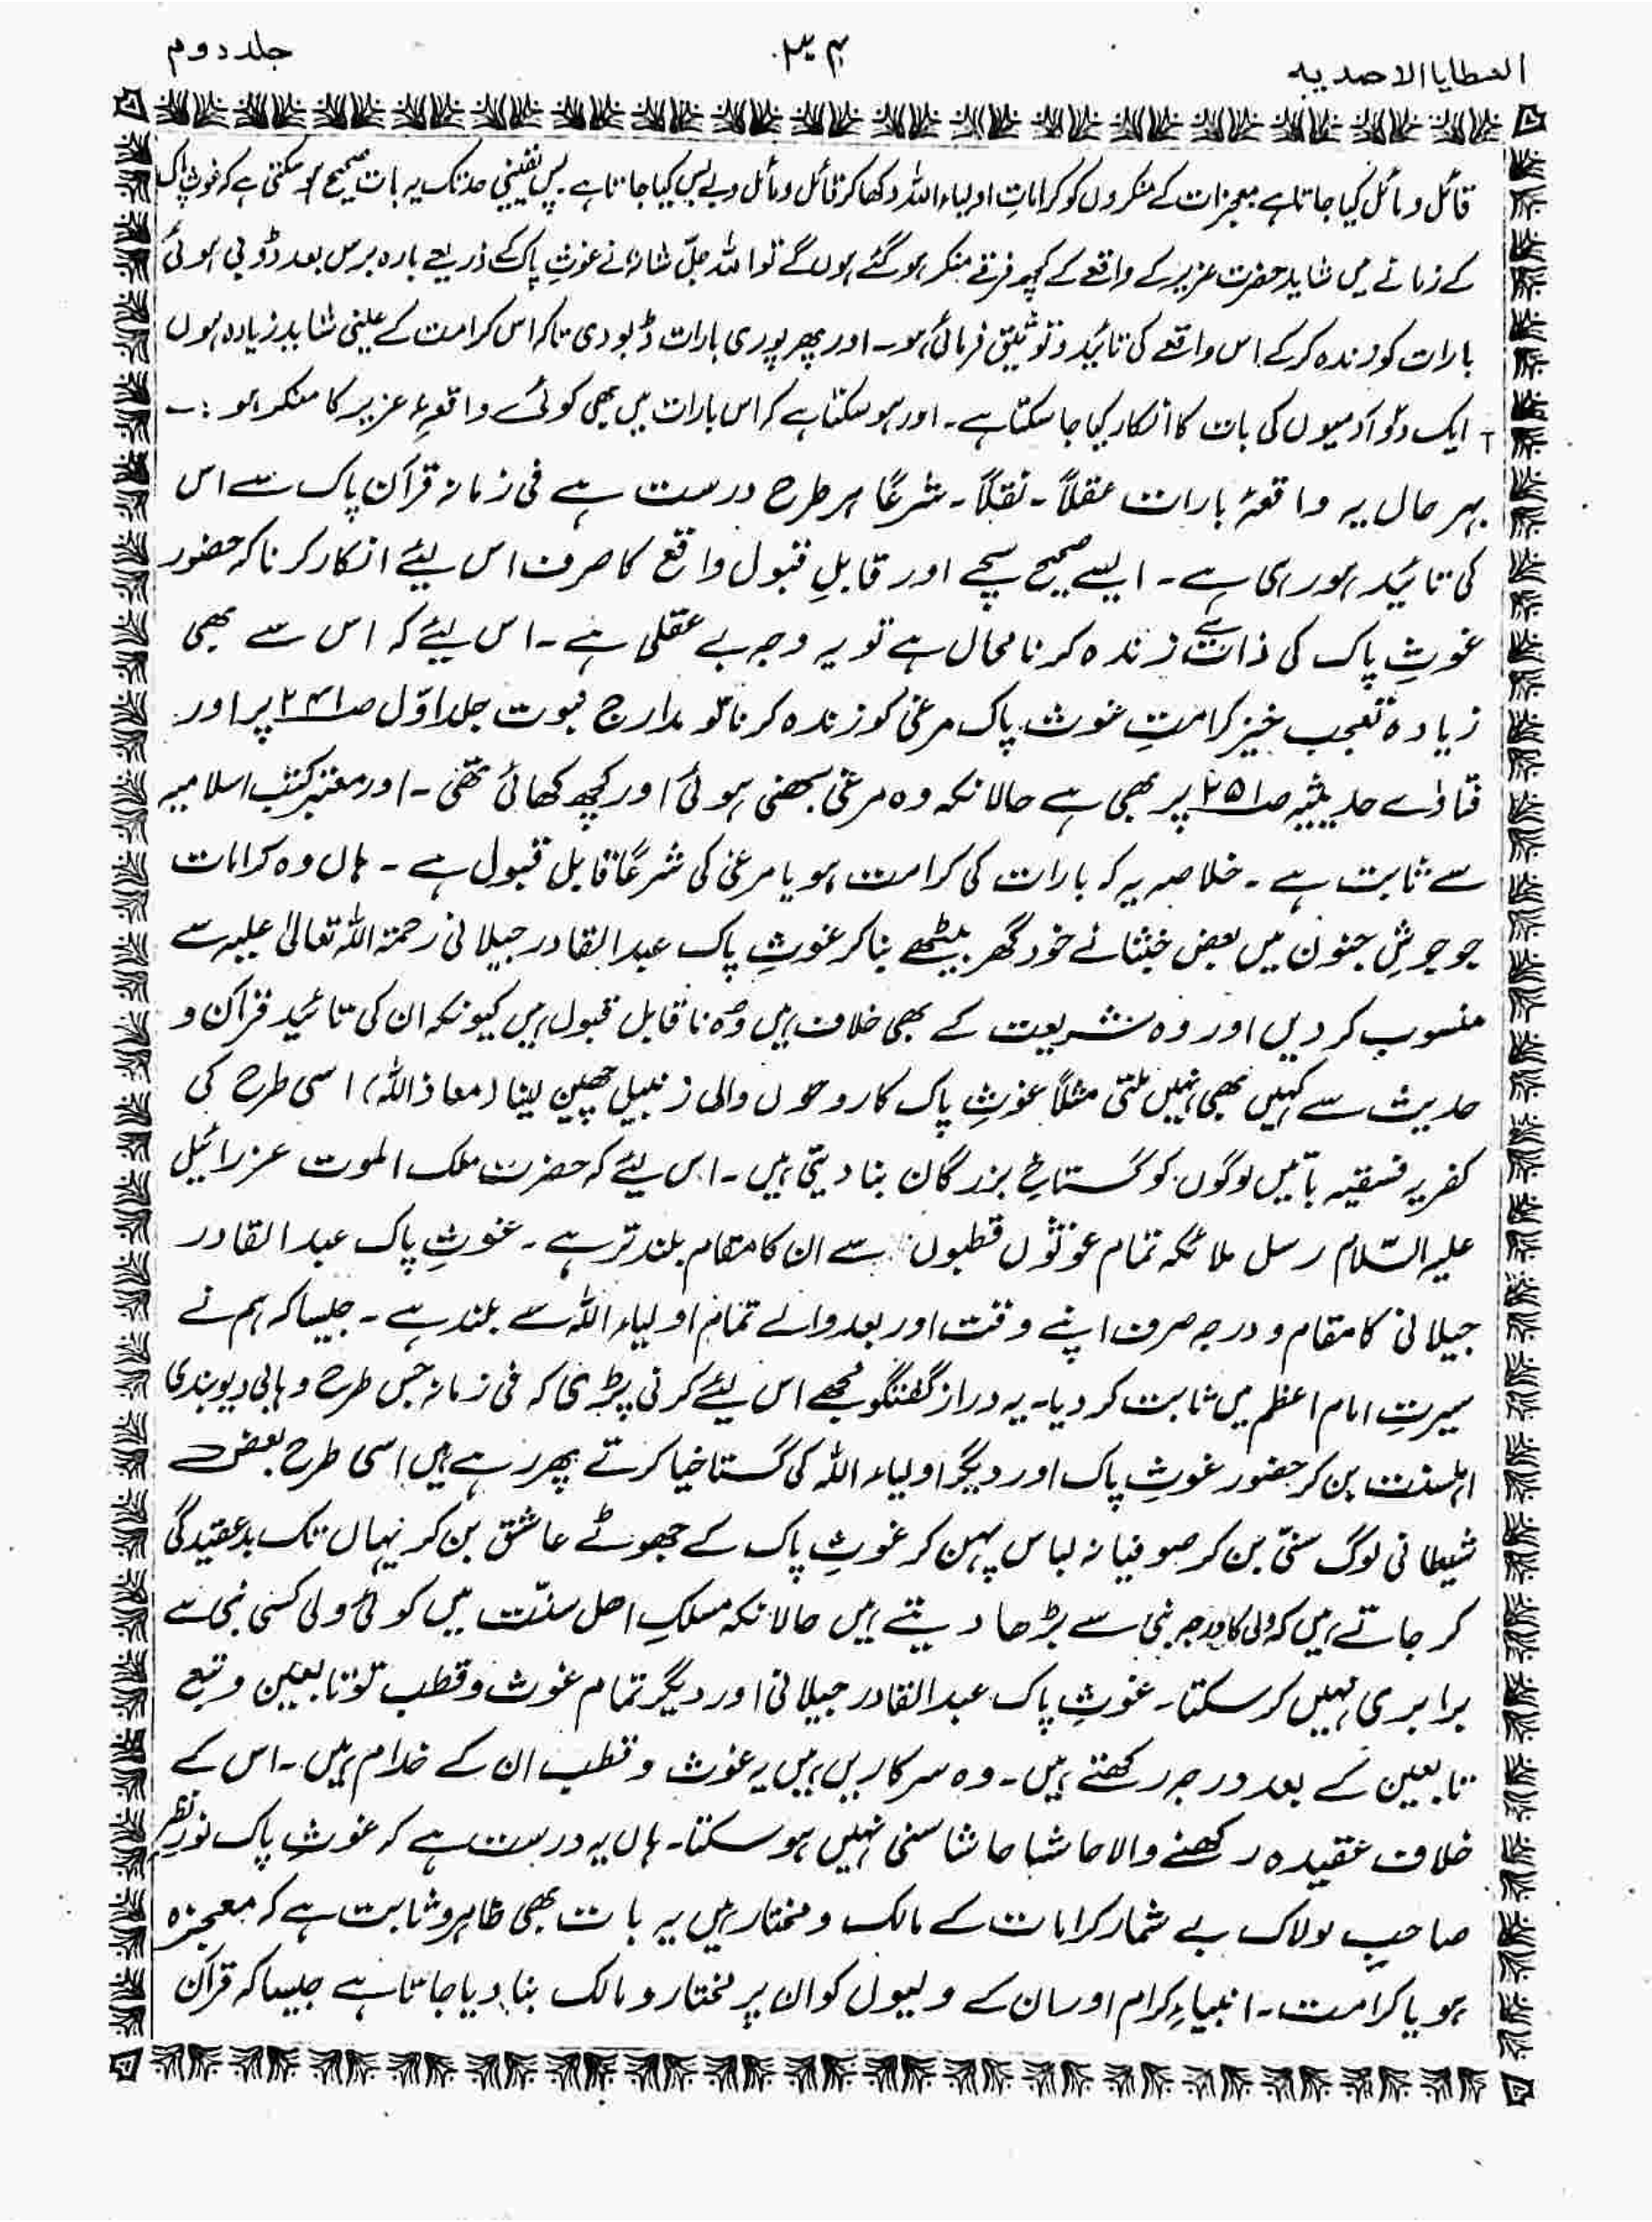 العطایا الاحمدیہ
جلد دوم
قائل و مائل کیا جاتا ہے معجزات کے منکروں کو کراماتِ اولیاء اللہ دکھا کر قائل و مائل و بے بس کیا جاتا ہے۔ پس یقینی حد تک یہ بات صحیح ہو سکتی ہے کہ غوثِ پاک
کے زمانے میں شاید حضرت عزیر کے واقعے کے کچھ فرقے منکر ہو گئے ہوں گے تو اللہ جلّ شانہٗ نے غوثِ پاک کے ذریعے بارہ برس بعد ڈوبی ہوئی
بارات کو زندہ کر کے اس واقعے کی تائید و توثیق فرمائی ہو۔ اور پھر پوری بارات ڈبو دی تاکہ اس کرامت کے عینی شاہد زیادہ ہوں
ایک دو آدمیوں کی بات کا انکار کیا جا سکتا ہے۔ اور ہو سکتا ہے کہ اس بارات میں بھی کوئی واقعہِ عزیر کا منکر ہو :۔
بہر حال یہ واقعۂ بارات عقلاً۔ نقلاً۔ شرعًا ہر طرح درست ہے فی زمانہ قرآن پاک سے اس
کی تائید ہو رہی ہے۔ ایسے صحیح سچے اور قابلِ قبول واقع کا صرف اس لیئے انکار کرنا کہ حضور
غوثِ پاک کی ذات سے زندہ کرنا محال ہے تو یہ وجہ بے عقلی ہے۔ اس لیئے کہ اس سے بھی
زیادہ تعجب خیز کرامتِ غوث پاک مرغی کو زندہ کرنا تو مدارج نبوت جلد اوّل صـ۲۴۱ پر اور
فتاوٰے حدیثیہ صـ۲۵۱ پر بھی ہے حالانکہ وہ مرغی بھنی ہوئی اور کچھ کھائی تھی۔ اور معتبر کتب اسلامیہ
سے ثابت ہے۔ خلاصہ یہ کہ بارات کی کرامت ہو یا مرغی کی شرعًا قابل قبول ہے۔ ہاں وہ کرامات
جو جوشِ جنون میں بعض خبثا نے خود گھر بیٹھے بنا کر غوثِ پاک عبدالقادر جیلانی رحمۃ اللہ تعالیٰ علیہ سے
منسوب کر دیں اور وہ شریعت کے بھی خلاف ہیں وہ ناقابل قبول ہیں کیونکہ ان کی تائید قرآن و
حدیث سے کہیں بھی نہیں ملتی مثلاً غوثِ پاک کا روحوں والی زنبیل چھین لینا (معاذ اللہ) اسی طرح کی
کفریہ فسقیہ باتیں لوگوں کو گستاخِ بزرگان بنا دیتی ہیں۔ اس لیئے کہ حضرت ملک الموت عزرائیل
علیہ السّلام رسل ملائکہ تمام غوثوں قطبوں سے ان کا مقام بلند تر ہے۔ غوثِ پاک عبد القادر
جیلانی کا مقام و درجہ صرف اپنے وقت اور بعد والے تمام اولیاء اللہ سے بلند ہے۔ جیسا کہ ہم نے
سیرتِ امام اعظم میں ثابت کر دیا۔ یہ دراز گفتگو مجھے اس لیئے کرنی پڑی کہ فی زمانہ جس طرح وہابی دیوبندی
اہلسنت بن کر حضور غوثِ پاک اور دیگر اولیاء اللہ کی گستاخیا کرتے پھر رہے ہیں اسی طرح بعض
شیطانی لوگ سنّی بن کر صوفیانہ لباس پہن کر غوثِ پاک کے جھوٹے عاشق بن کر یہاں تک بد عقیدگی
کر جاتے ہیں کہ ولی کا درجہ نبی سے بڑھا دیتے ہیں حالانکہ مسلکِ اھل سنّت میں کوئی ولی کسی نبی سے
برابری نہیں کر سکتا۔ غوثِ پاک عبدالقادر جیلانی اور دیگر تمام غوث و قطب تو تابعین و تبع
تابعین کے بعد درجہ رکھتے ہیں۔ وہ سرکاریں ہیں یہ غوث و قطب ان کے خدام ہیں۔ اس کے
خلاف عقیدہ رکھنے والا حاشا حاشا سنی نہیں ہو سکتا۔ ہاں یہ درست ہے کہ غوثِ پاک نورِ نظر
صاحبِ لولاک بے شمار کرامات کے مالک و مختار ہیں یہ بات بھی ظاہر و ثابت ہے کہ معجزہ
ہو یا کرامت۔ انبیاءِ کرام اور ان کے ولیوں کو ان پر مختار و مالک بنا دیا جاتا ہے جیسا کہ قرآن